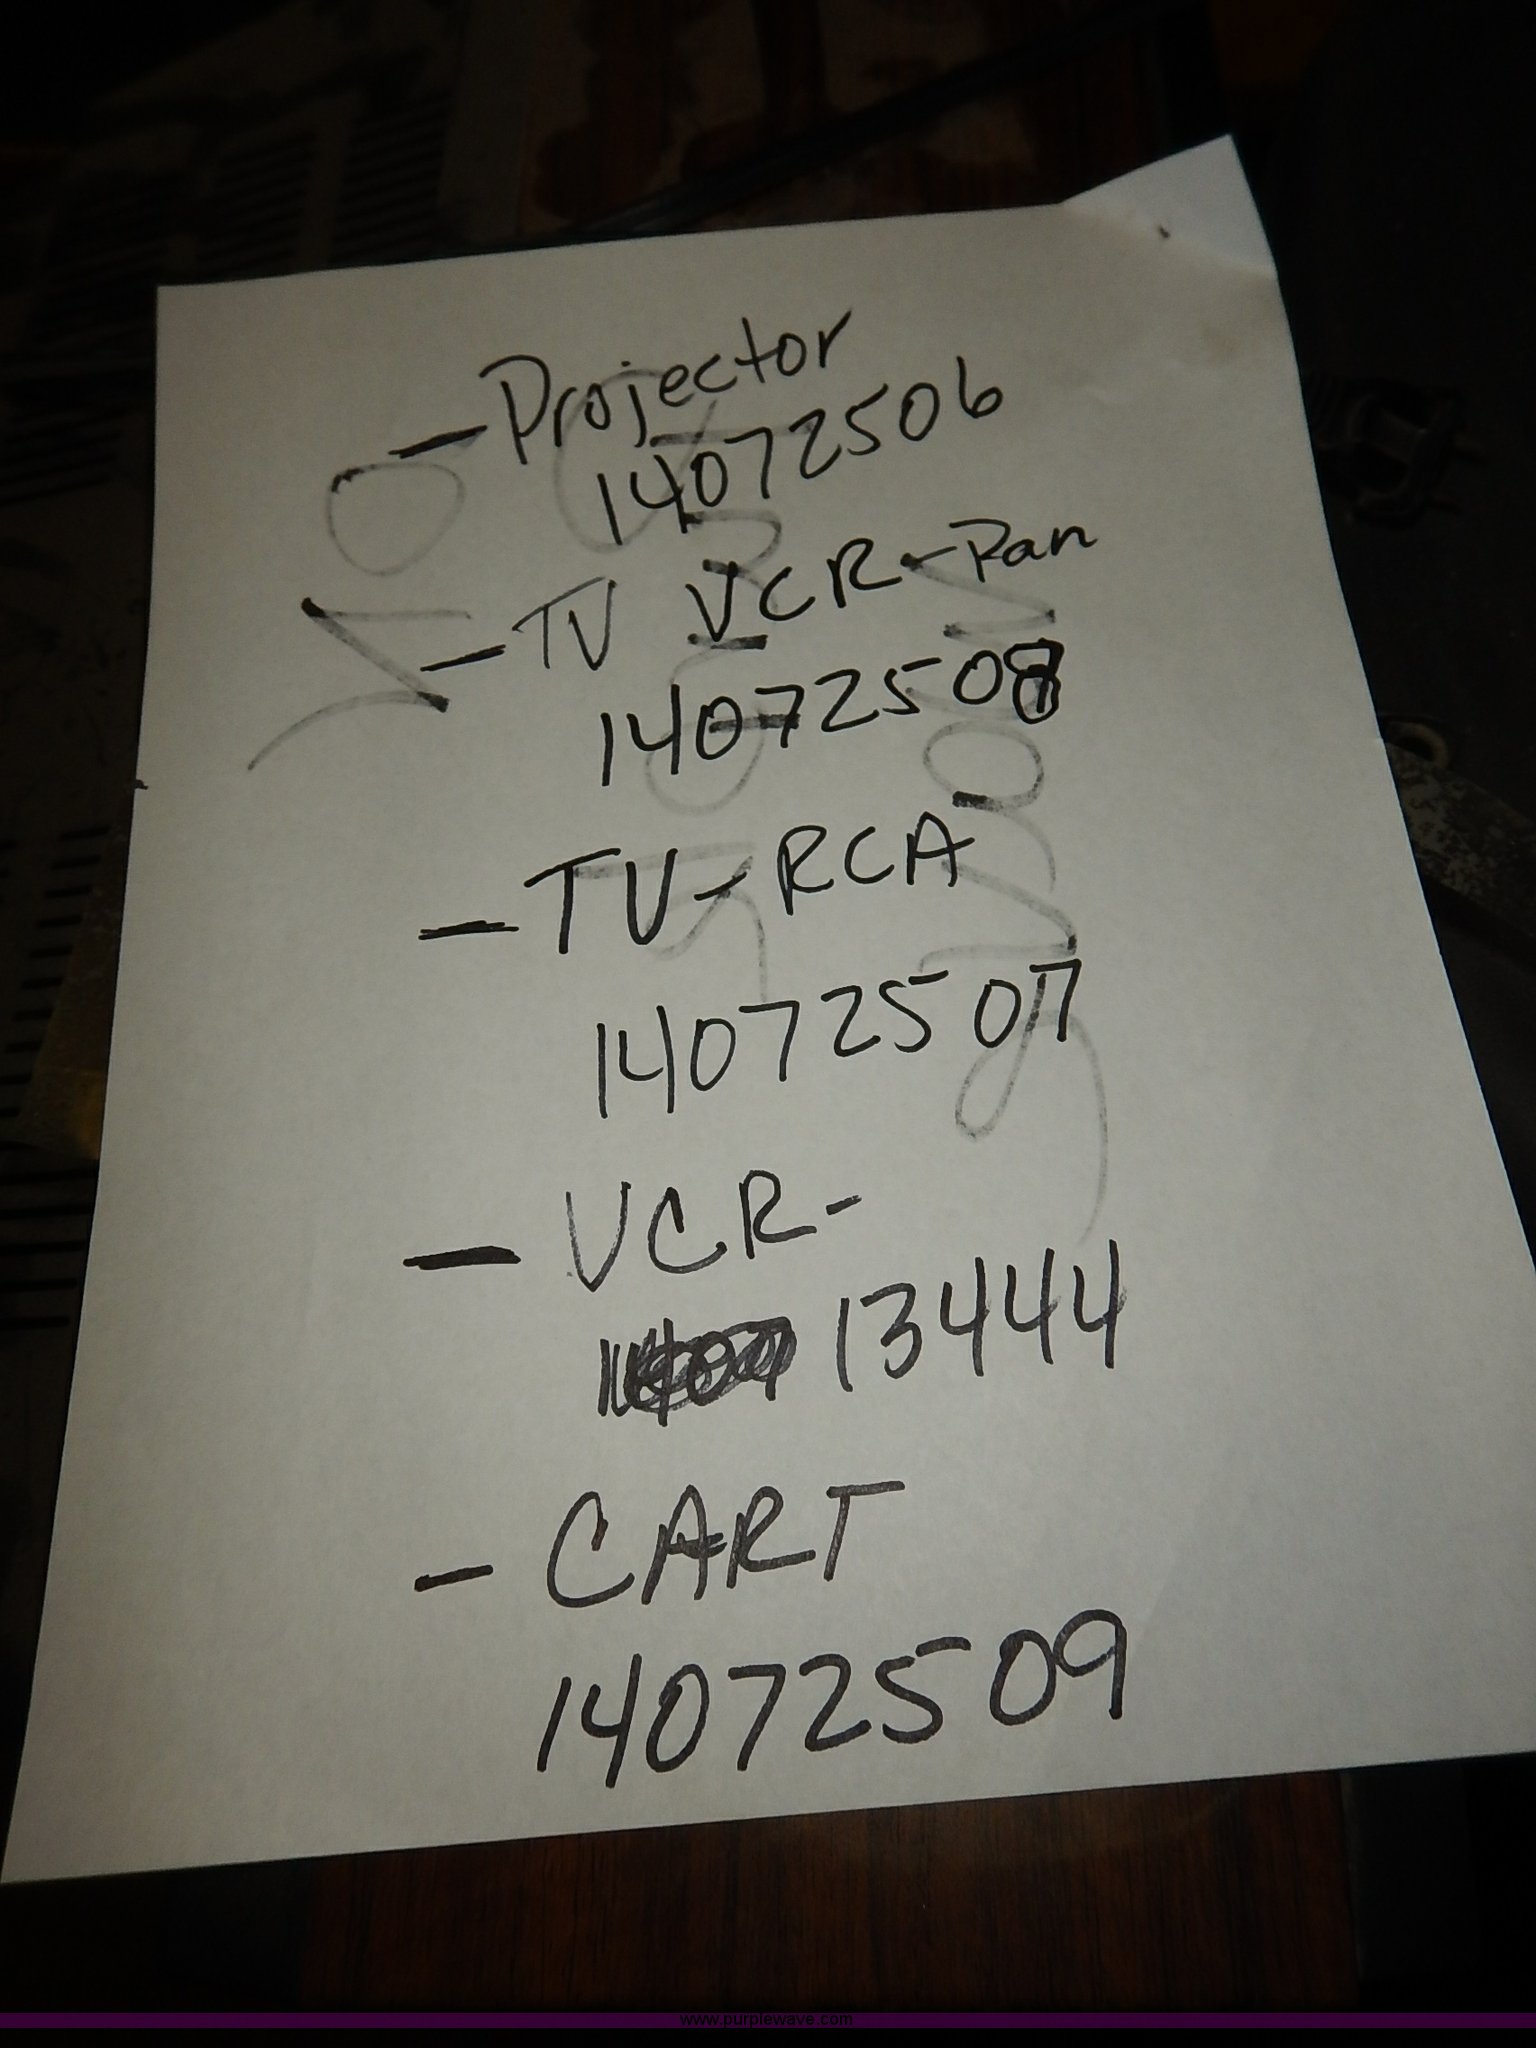 - Projector
14072506
- TV VCR - Pan
14072508
- TV - RCA
14072507
- VCR -
13444
- CART
14072509
www.purplewave.com